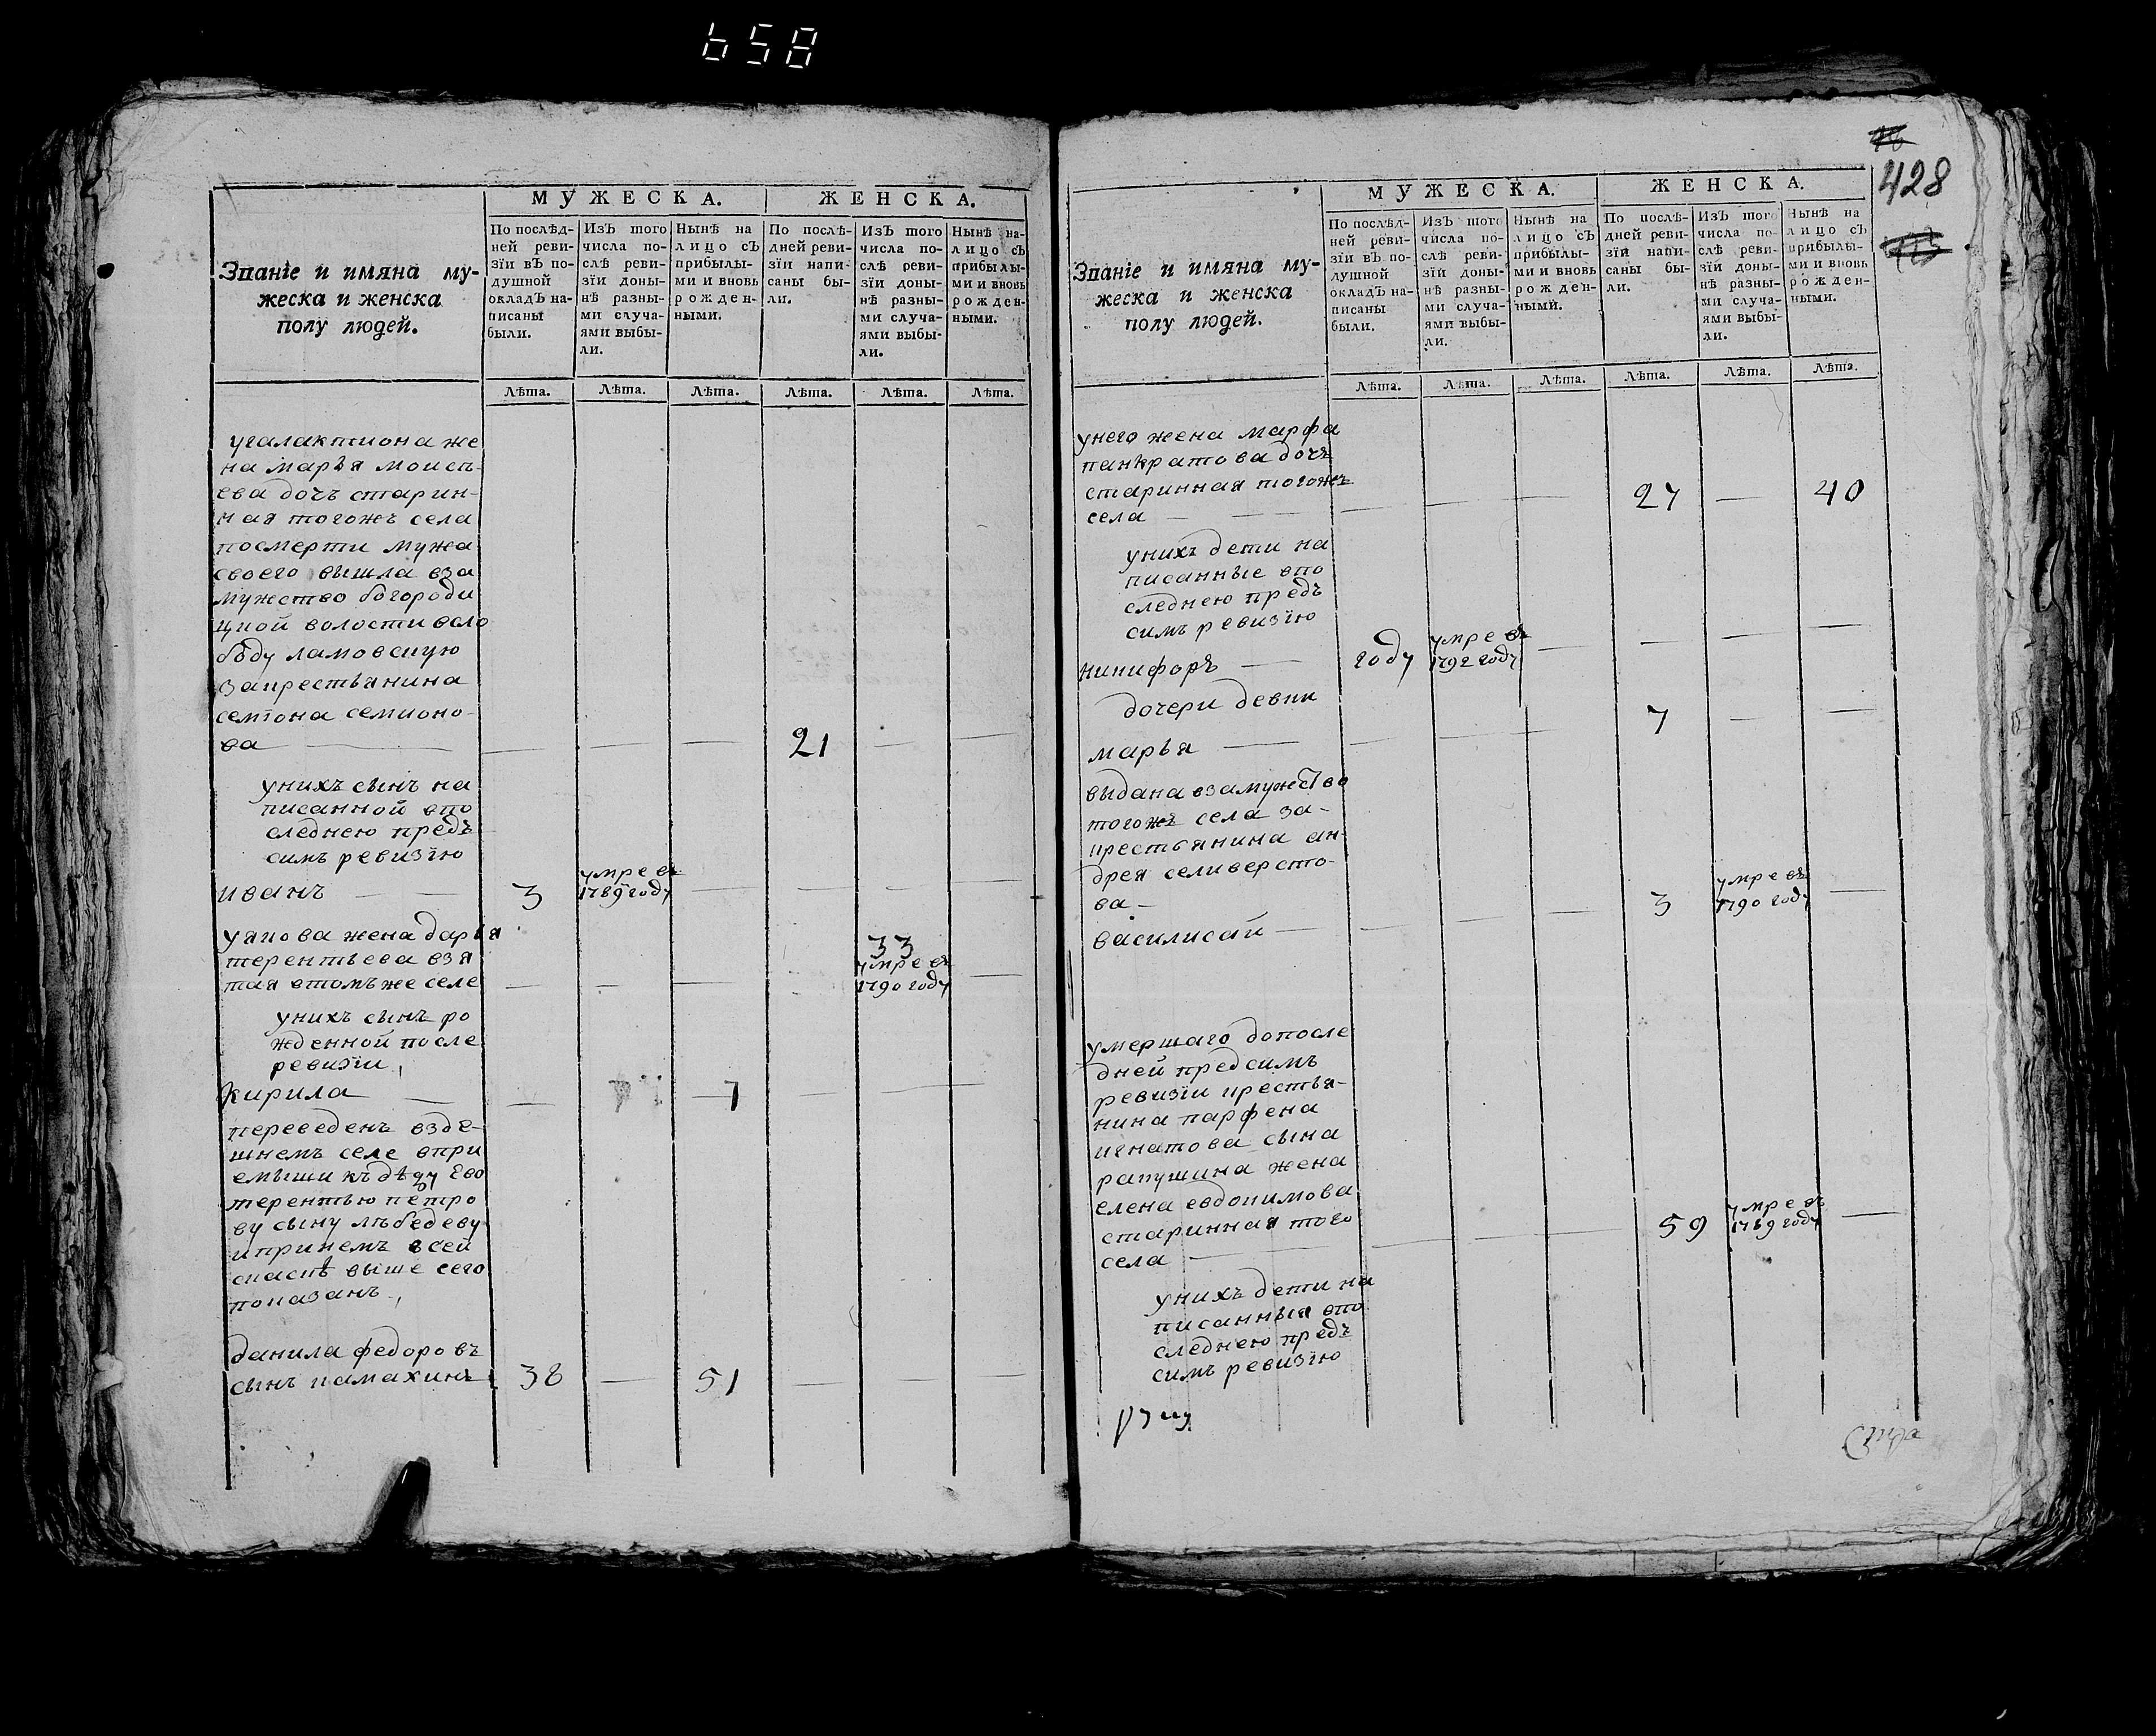 658
МУЖЕСКА. ЖЕНСКА.
Званіе и имяна му-
жеска и женска
полу людей.
По послѣд-
ней реви-
зїи вЪ по-
душной
окладЪ на-
писаны
были.
ИзЪ того
числа по-
слѣ реви-
зїи доны-
нѣ разны-
ми случа-
ями выбы-
ли.
Нынѣ на
лицо сЪ
прибылы-
ми и вновь
рожден-
ными.
По послѣ-
дней реви-
зїи напи-
саны бы-
ли.
ИзЪ того
числа по-
слѣ реви-
зїи доны-
нѣ разны-
ми случа-
ями выбы-
ли.
Нынѣ на-
лицо сЪ
прибылы-
ми и вновь
рожден-
ными.
Лѣта. Лѣта. Лѣта. Лѣта. Лѣта. Лѣта.
угалактиона же
на марья моисѣ-
ева дочь старин-
ная тогожъ села
посмерти мужа
своего вышла вза
мужество богороди
цкой волости всло
боду ламовскую
закрестьянина
семїона семионо-
ва — — — — 21 — —
унихъ сынъ на
писанной впо
следнею предъ
симъ ревизїю
иванъ — 3 умре въ 1789 году — — — —
уякова жена дарья
терентьева взя
тая втомъже селе — — — 33 умре въ 1790 году —
унихъ сынъ ро
жденной после
ревизїи
кирила — — 7 — — —
переведенъ взде-
шнемъ селе впри
емыши къ дѣду ево
терентью петро
ву сыну лѣбедеву
ипринемъ в сей
скаскѣ выше сего
показанъ
данила федоровъ
сынъ камахинъ 38 — 51 — — —
428
МУЖЕСКА. ЖЕНСКА.
Званіе и имяна му-
жеска и женска
полу людей.
По послѣд-
ней реви-
зїи вЪ по-
душной
окладЪ на-
писаны
были.
ИзЪ того
числа по-
слѣ реви-
зїи доны-
нѣ разны-
ми случа-
ями выбы-
ли.
Нынѣ на
лицо сЪ
прибылы-
ми и вновь
рожден-
ными.
По послѣ-
дней реви-
зїи напи-
саны бы-
ли.
ИзЪ того
числа по-
слѣ реви-
зїи доны-
нѣ разны-
ми случа-
ями выбы-
ли.
Нынѣ на
лицо сЪ
прибылы-
ми и вновь
рожден-
ными.
Лѣта. Лѣта. Лѣта. Лѣта. Лѣта. Лѣта.
унего жена марфа
панкратова дочь
старинная тогожъ
села — — — — 27 — 40
унихъ дети на
писанные впо
следнею предъ
симъ ревизїю
никифоръ — году умре въ 1792 году — — — —
дочери девки
марья — — — — 7 — —
выдана взамужство
тогожъ села за-
крестьянина ан-
дрея селиверсто-
ва —
василисай — — — — 3 умре въ 1790 году —
умершаго допосле
дней предсимъ
ревизїи крестья-
нина парфена
игнатова сына
капушина жена
елена евдокимова
старинная того
села — — — — 59 умре въ 1789 году —
унихъ дети на
писанныя впо
следнею предъ
симъ ревизїю